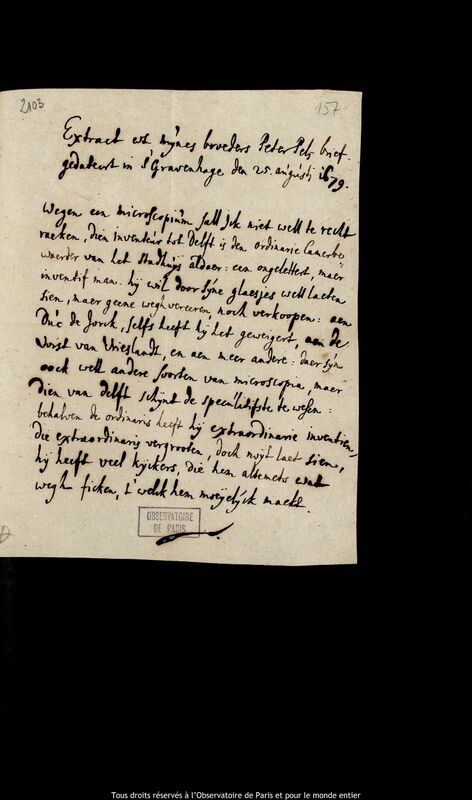 2103
157
Extract ext mijnes broeders Peter Pels brief
gedateert in s'Gravenhage den 25. augusti 1679.
Wegen een microscopium sall Ick niet well te recht
raeken, dien inventeur tot Delft is den ordinarie Camerbe
waerder van het Stadhuijs aldaer: een ongelettert, maer
inventif man. hij wil door sijne glaesjes well laeten
sien, maer geene weghvereeren, noch verkoopen: aen
Duc de Jorck, selfs heeft hij het geweigert, aen de
Vorst van Vrieslandt, en aen meer andere: daer sijn
oock well andere soorten van microscopia, maer
dien van delft schijnt de speculatifste te wesen:
behalven de ordinaris heeft hij extraordinarie inventien,
die extraordinarij vergrooten, doch noijt laet sien,
hij heeft veel kijckers, die hem altemets wat
wegh ficken, t'welck hem moeijelijck mackt.
OBSERVATOIRE
DE PARIS
Tous droits réservés à l'Observatoire de Paris et pour le monde entier